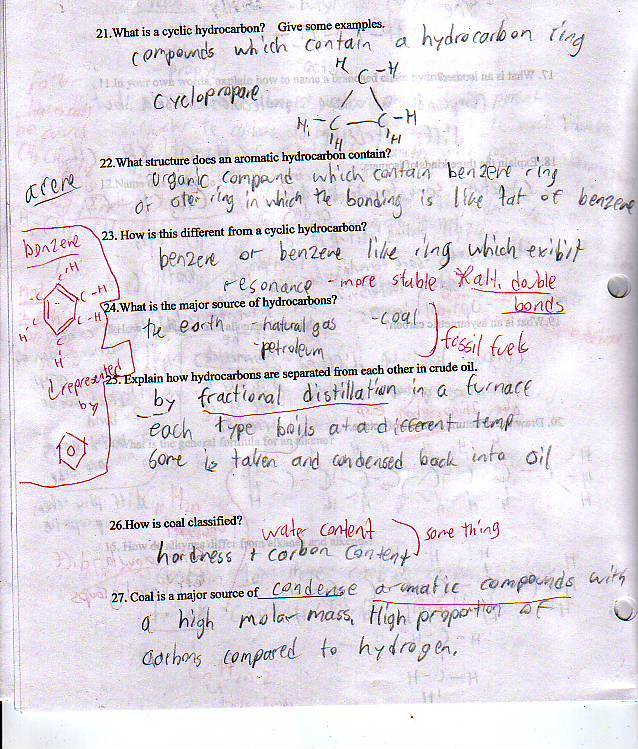 21. What is a cyclic hydrocarbon? Give some examples.
compounds which contain a hydrocarbon ring
cyclopropane
H C-H
H-C-C-H
H H
22. What structure does an aromatic hydrocarbon contain?
arene
organic compound which contain benzene ring
or oter ring in which the bonding is like tat of benzene
23. How is this different from a cyclic hydrocarbon?
benzene
benzene or benzene like ring which exibit
resonance - more stable *alt. double
bonds
24. What is the major source of hydrocarbons?
the earth - natural gas - coal
- petroleum
fossil fuels
25. Explain how hydrocarbons are separated from each other in crude oil.
represented
by
by fractional distillation in a furnace
each type boils at a different temp
some is taken and condensed back into oil
26. How is coal classified?
water content
same thing
hardness + carbon content
27. Coal is a major source of condense aromatic compounds with
a high molar mass, High proportion of
carbons compared to hydrogen.